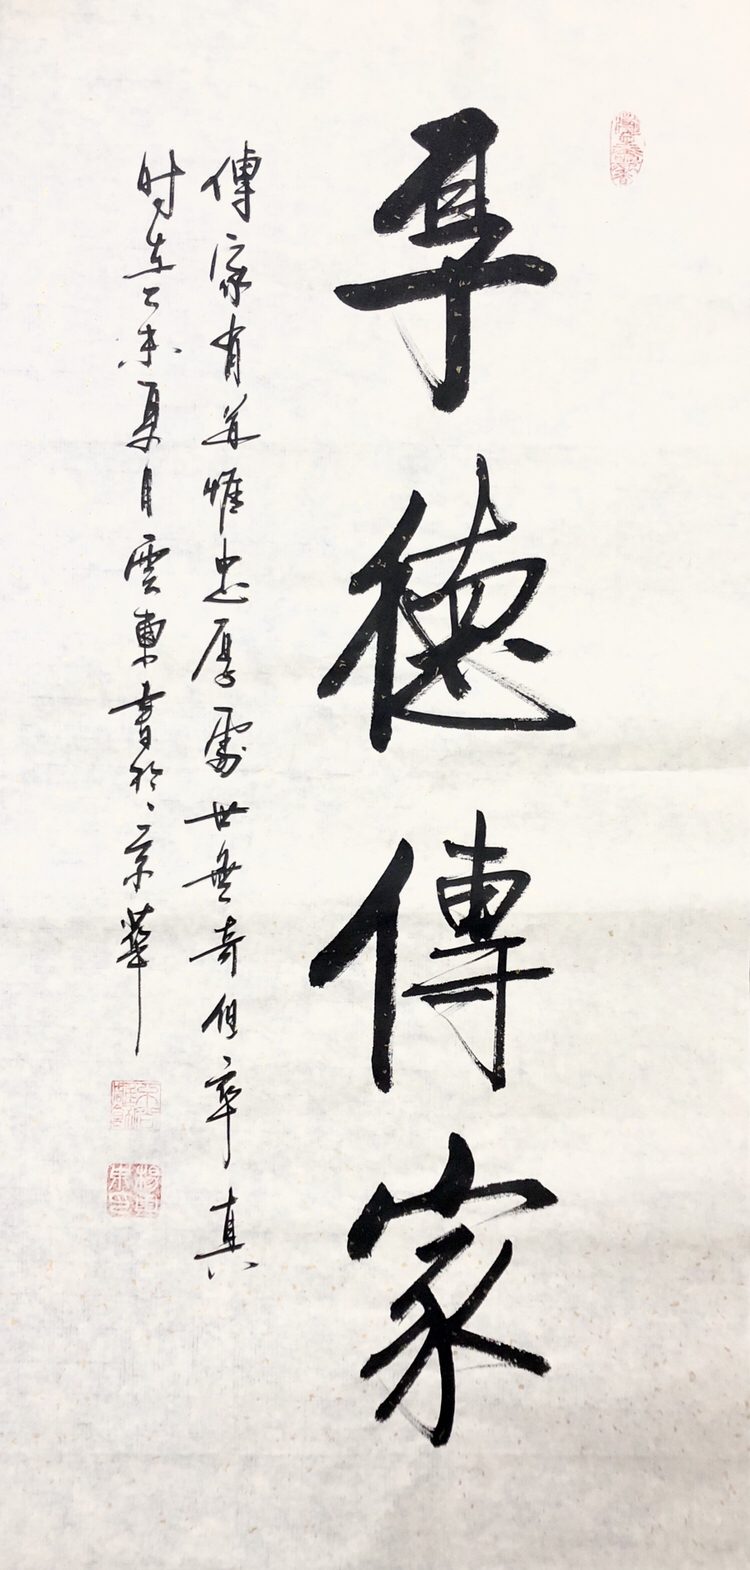 厚德傳家
傳家有道惟忠厚處世無奇但率真
时在乙未夏月雲東書於京華